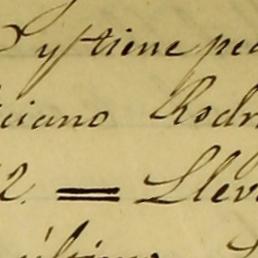 y tiene pe
ciano Rodr
2. = Llev
último